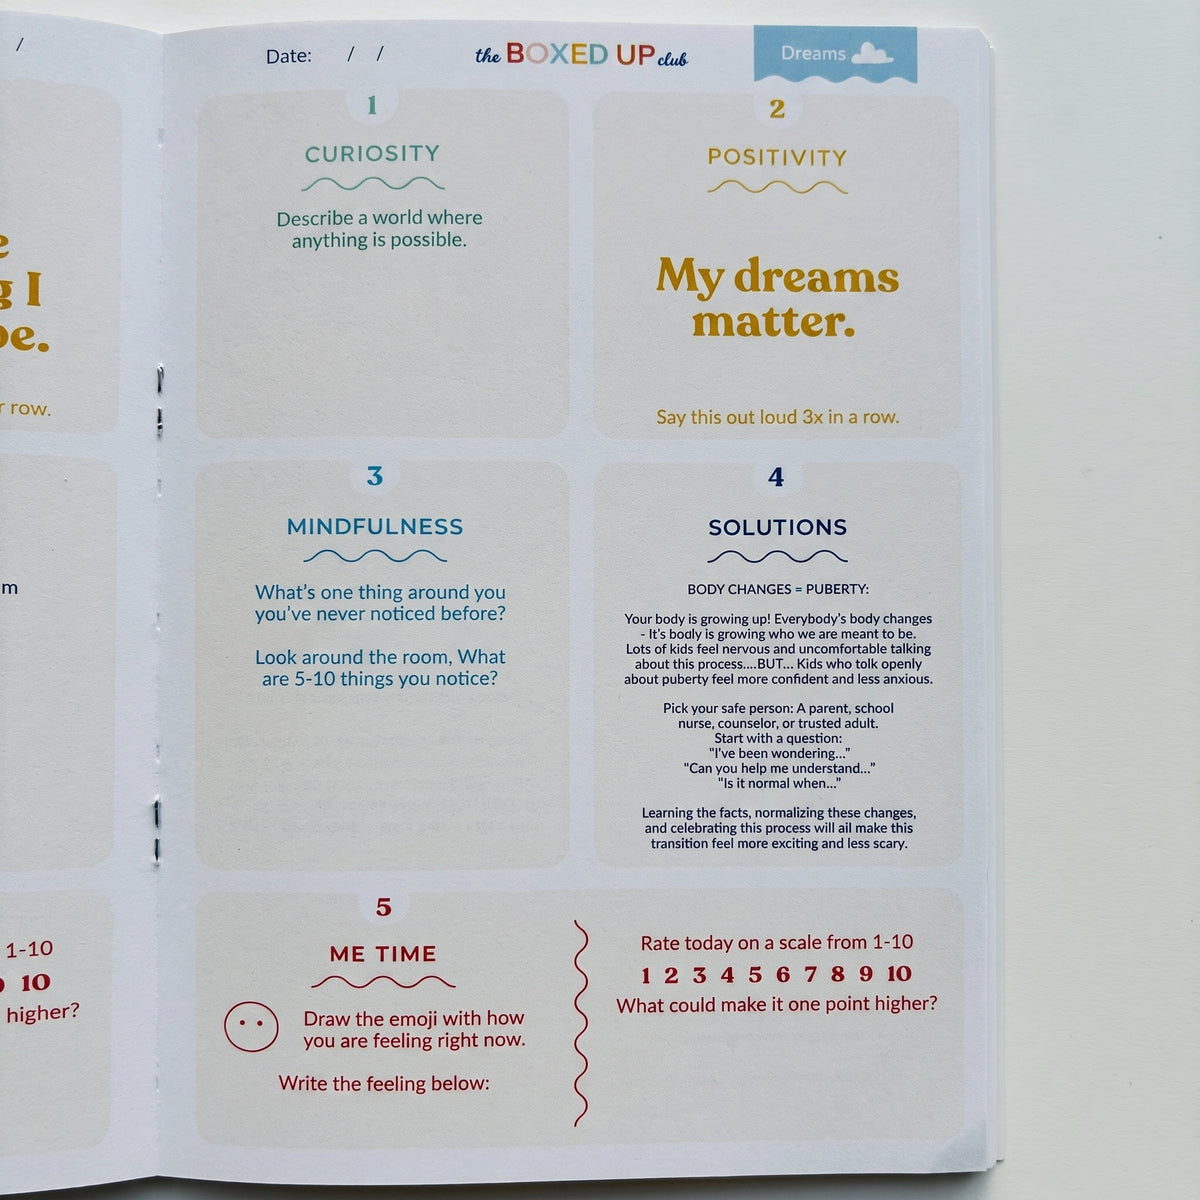 /
e
g I
be.
r row.
m
1-10
10
higher?
Date: / /
the BOXED UP club
Dreams
1
CURIOSITY
Describe a world where
anything is possible.
2
POSITIVITY
My dreams
matter.
Say this out loud 3x in a row.
3
MINDFULNESS
What's one thing around you
you've never noticed before?
Look around the room, What
are 5-10 things you notice?
4
SOLUTIONS
BODY CHANGES = PUBERTY:
Your body is growing up! Everybody's body changes
- It's bodly is growing who we are meant to be.
Lots of kids feel nervous and uncomfortable talking
about this process....BUT... Kids who tolk openly
about puberty feel more confident and less anxious.
Pick your safe person: A parent, school
nurse, counselor, or trusted adult.
Start with a question:
"I've been wondering..."
"Can you help me understand..."
"Is it normal when..."
Learning the facts, normalizing these changes,
and celebrating this process will ail make this
transition feel more exciting and less scary.
5
ME TIME
Draw the emoji with how
you are feeling right now.
Write the feeling below:
Rate today on a scale from 1-10
1 2 3 4 5 6 7 8 9 10
What could make it one point higher?